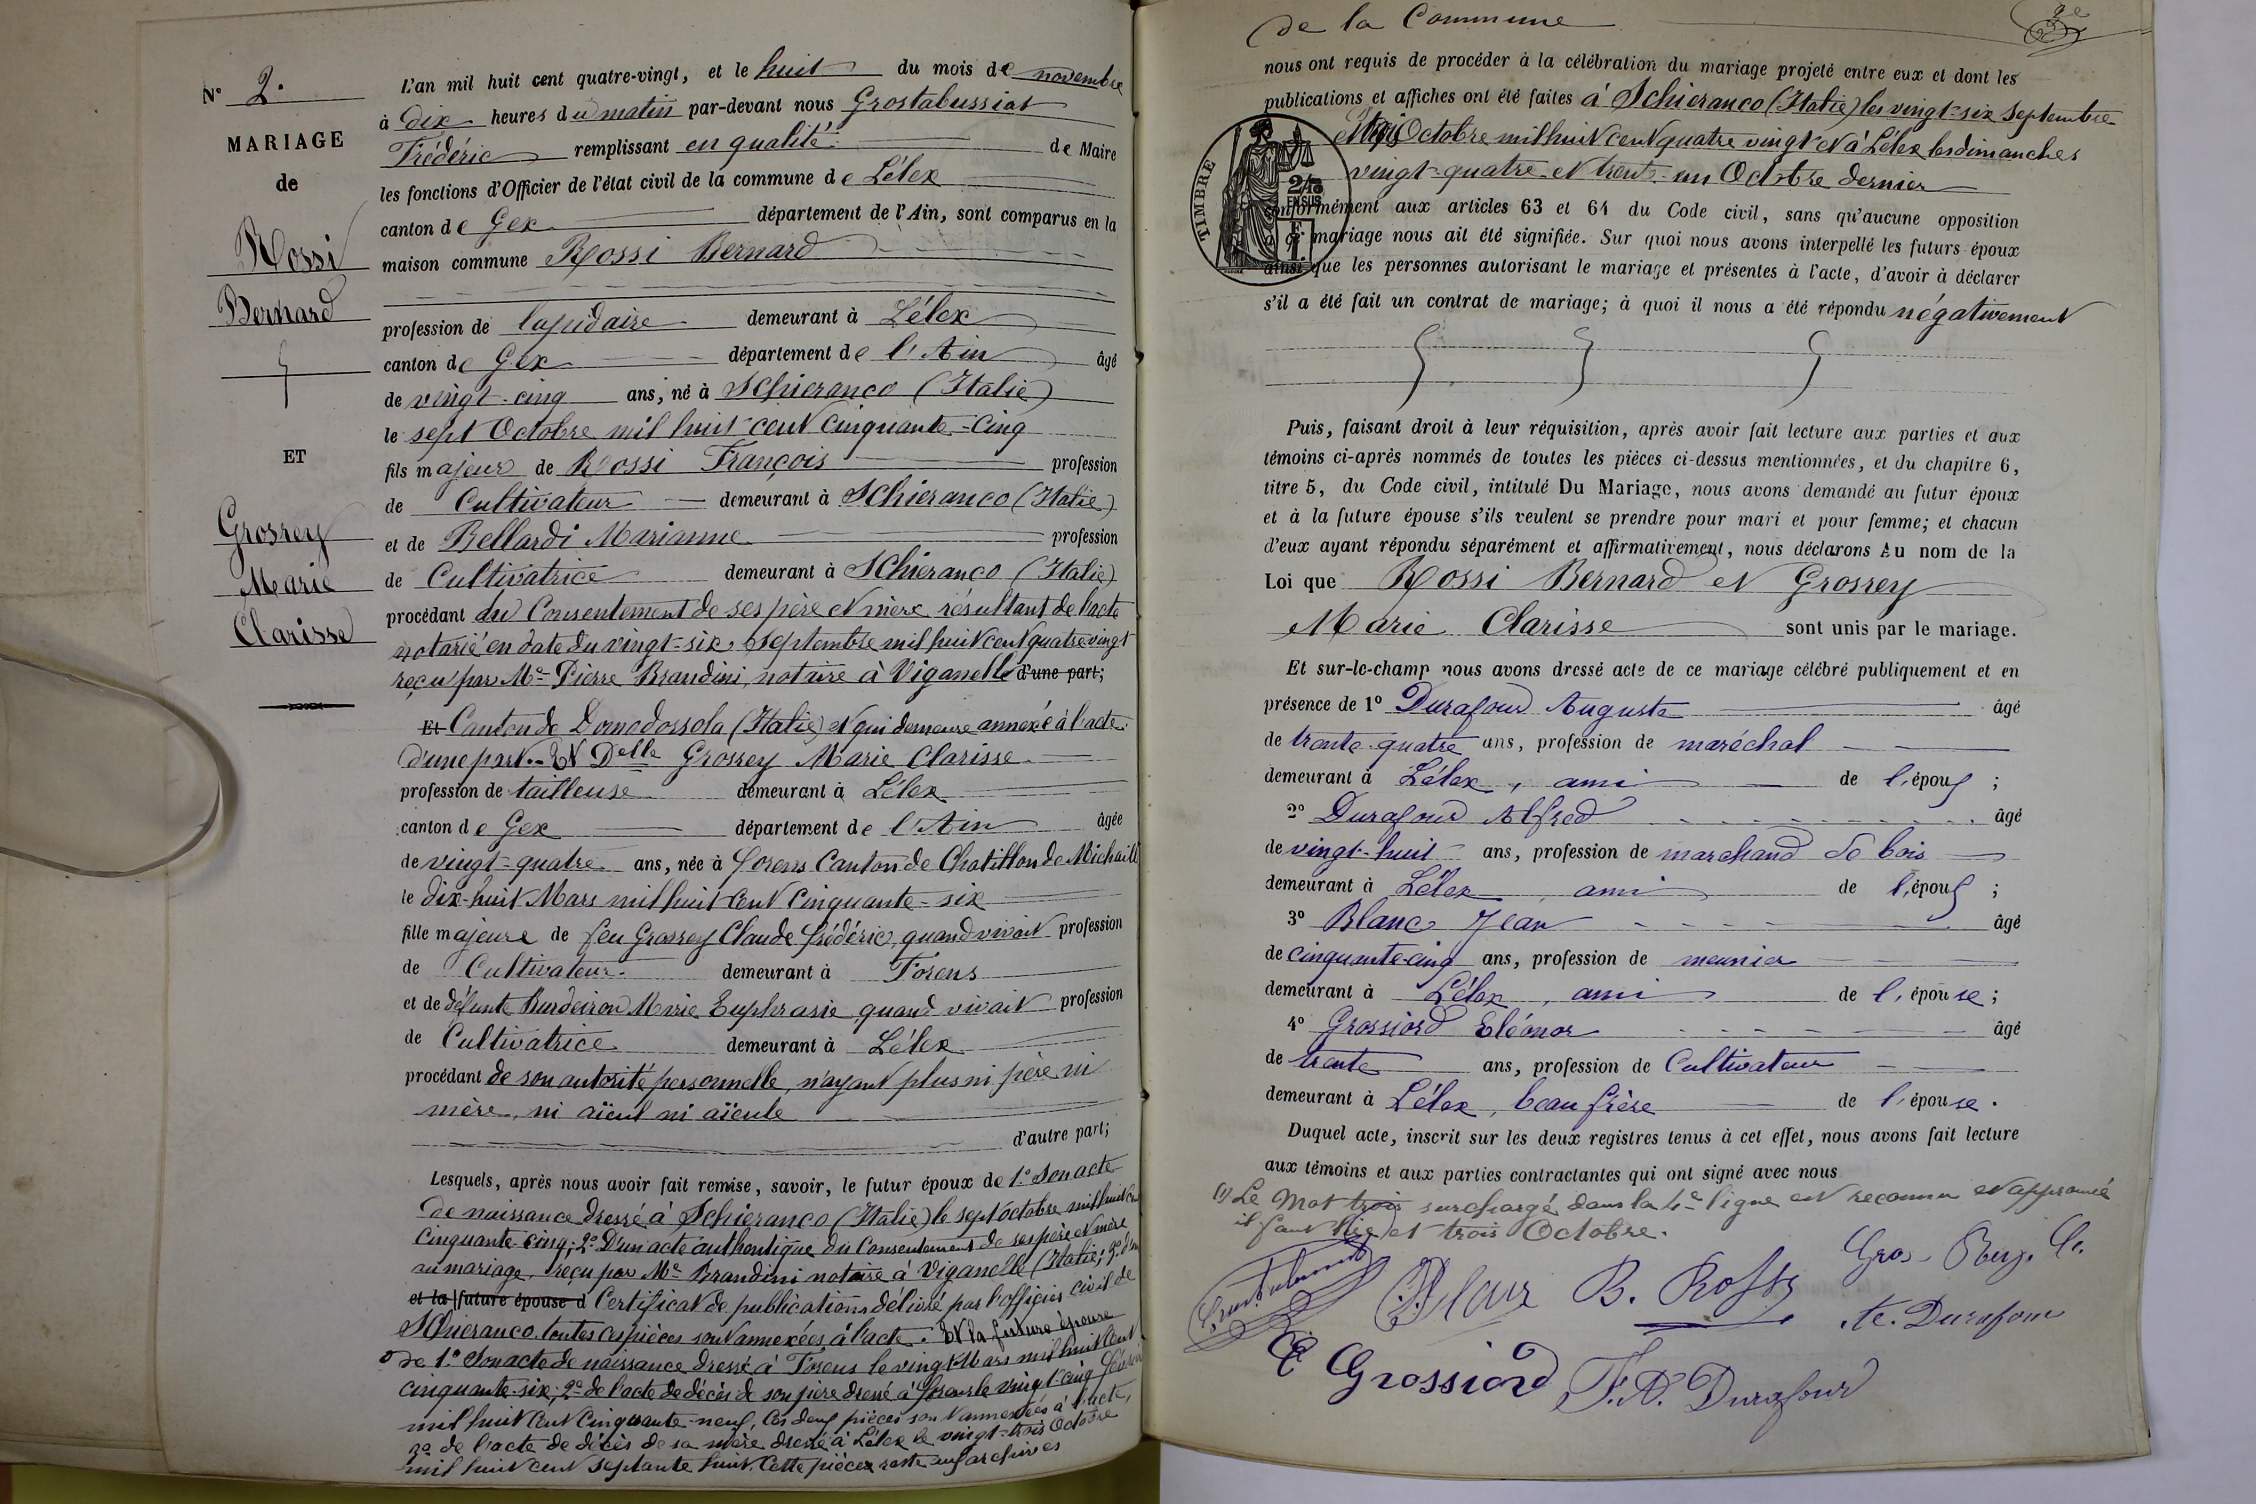 N° 2.
MARIAGE
de
Rossi
Bernard
ET
Grosrey
Marie
Clarisse
L'an mil huit cent quatre-vingt, et le huit du mois de novembre
à dix heures du matin par-devant nous Grostabussiat
Frédéric remplissant en qualité de Maire
les fonctions d'Officier de l'état civil de la commune de Lélex
canton de Gex département de l'Ain, sont comparus en la
maison commune Rossi Bernard
profession de lapidaire demeurant à Lélex
canton de Gex département de l'Ain âgé
de vingt-cinq ans, né à Schieranco (Italie)
le sept Octobre mil huit cent cinquante-cinq
fils majeur de Rossi François profession
de Cultivateur demeurant à Schieranco (Italie)
et de Bellardi Marianne profession
de Cultivatrice demeurant à Schieranco (Italie)
procédant du Consentement de ses père et mère résultant de l'acte
notarié en date du vingt-six Septembre mil huit cent quatre vingt
reçu par Me Pierre Brandini, notaire à Viganelle d'une part;
Et Canton de Domodossola (Italie) et qui demeure annexé à l'acte.
d'une part. Et Delle Grosrey Marie Clarisse
profession de tailleuse demeurant à Lélex
canton de Gex département de l'Ain âgée
de vingt-quatre ans, née à Forens Canton de Chatillon de Michaille
le dix-huit Mars mil huit cent cinquante-six
fille majeure de feu Grosrey Claude frédéric, quand vivait profession
de Cultivateur demeurant à Forens
et de défunte Burdeiron Marie Euphrasie quand vivait profession
de Cultivatrice demeurant à Lélex
procédant de son autorité personnelle, n'ayant plus ni père ni
mère, ni aïeul ni aïeule
d'autre part;
Lesquels, après nous avoir fait remise, savoir, le futur époux de 1° Son acte
de naissance dressé à Schieranco (Italie) le sept octobre mil huit cent
cinquante cinq; 2° D'un acte authentique du Consentement de ses père et mère
au mariage, reçu par Me Brandini notaire à Viganelle (Italie; 3° d'un
et la future épouse d Certificat de publications délivré par l'officier civil de
Schieranco toutes ces pièces sont annexées à l'acte. Et la future épouse
de 1° Son acte de naissance dressé à Forens le vingt Mars mil huit cent
cinquante-six; 2° de l'acte de décès de son père dressé à Forens le vingt-cinq février
mil huit cent cinquante-neuf, Ces deux pièces sont annexées à l'acte,
3° de l'acte de décès de sa mère dressé à Lélex le vingt-trois Octobre
mil huit cent septante huit. Cette pièces reste aux archives
de la Commune
nous ont requis de procéder à la célébration du mariage projeté entre eux et dont les
publications et affiches ont été faites à Schieranco (Italie) les vingt-six septembre
et trois Octobre mil huit cent quatre vingt et à Lélex les dimanches
vingt-quatre et trente-un Octobre dernier
conformément aux articles 63 et 64 du Code civil, sans qu'aucune opposition
à ce mariage nous ait été signifiée. Sur quoi nous avons interpellé les futurs époux
ainsi que les personnes autorisant le mariage et présentes à l'acte, d'avoir à déclarer
s'il a été fait un contrat de mariage; à quoi il nous a été répondu négativement
TIMBRE
2/10
EN SUS
Puis, faisant droit à leur réquisition, après avoir fait lecture aux parties et aux
témoins ci-après nommés de toutes les pièces ci-dessus mentionnées, et du chapitre 6,
titre 5, du Code civil, intitulé Du Mariage, nous avons demandé au futur époux
et à la future épouse s'ils veulent se prendre pour mari et pour femme; et chacun
d'eux ayant répondu séparément et affirmativement, nous déclarons Au nom de la
Loi que Rossi Bernard et Grosrey
Marie Clarisse sont unis par le mariage.
Et sur-le-champ nous avons dressé acte de ce mariage célébré publiquement et en
présence de 1° Durafour Auguste âgé
de trente-quatre ans, profession de maréchal
demeurant à Lélex, ami de l'époux ;
2° Durafour Alfred âgé
de vingt-huit ans, profession de marchand de bois
demeurant à Lélex, ami de l'époux ;
3° Blanc Jean âgé
de cinquante-cinq ans, profession de meunier
demeurant à Lélex, ami de l'épouse ;
4° Grossiord Eléonor âgé
de trente ans, profession de Cultivateur
demeurant à Lélex, beau frère de l'épouse.
Duquel acte, inscrit sur les deux registres tenus à cet effet, nous avons fait lecture
aux témoins et aux parties contractantes qui ont signé avec nous
(1) Le Mot trois surchargé dans la 4e ligne est reconnu et approuvé
il faut lire et trois Octobre.
B. Rossy
A. Durafour
E Grossiord
F. A. Durafour